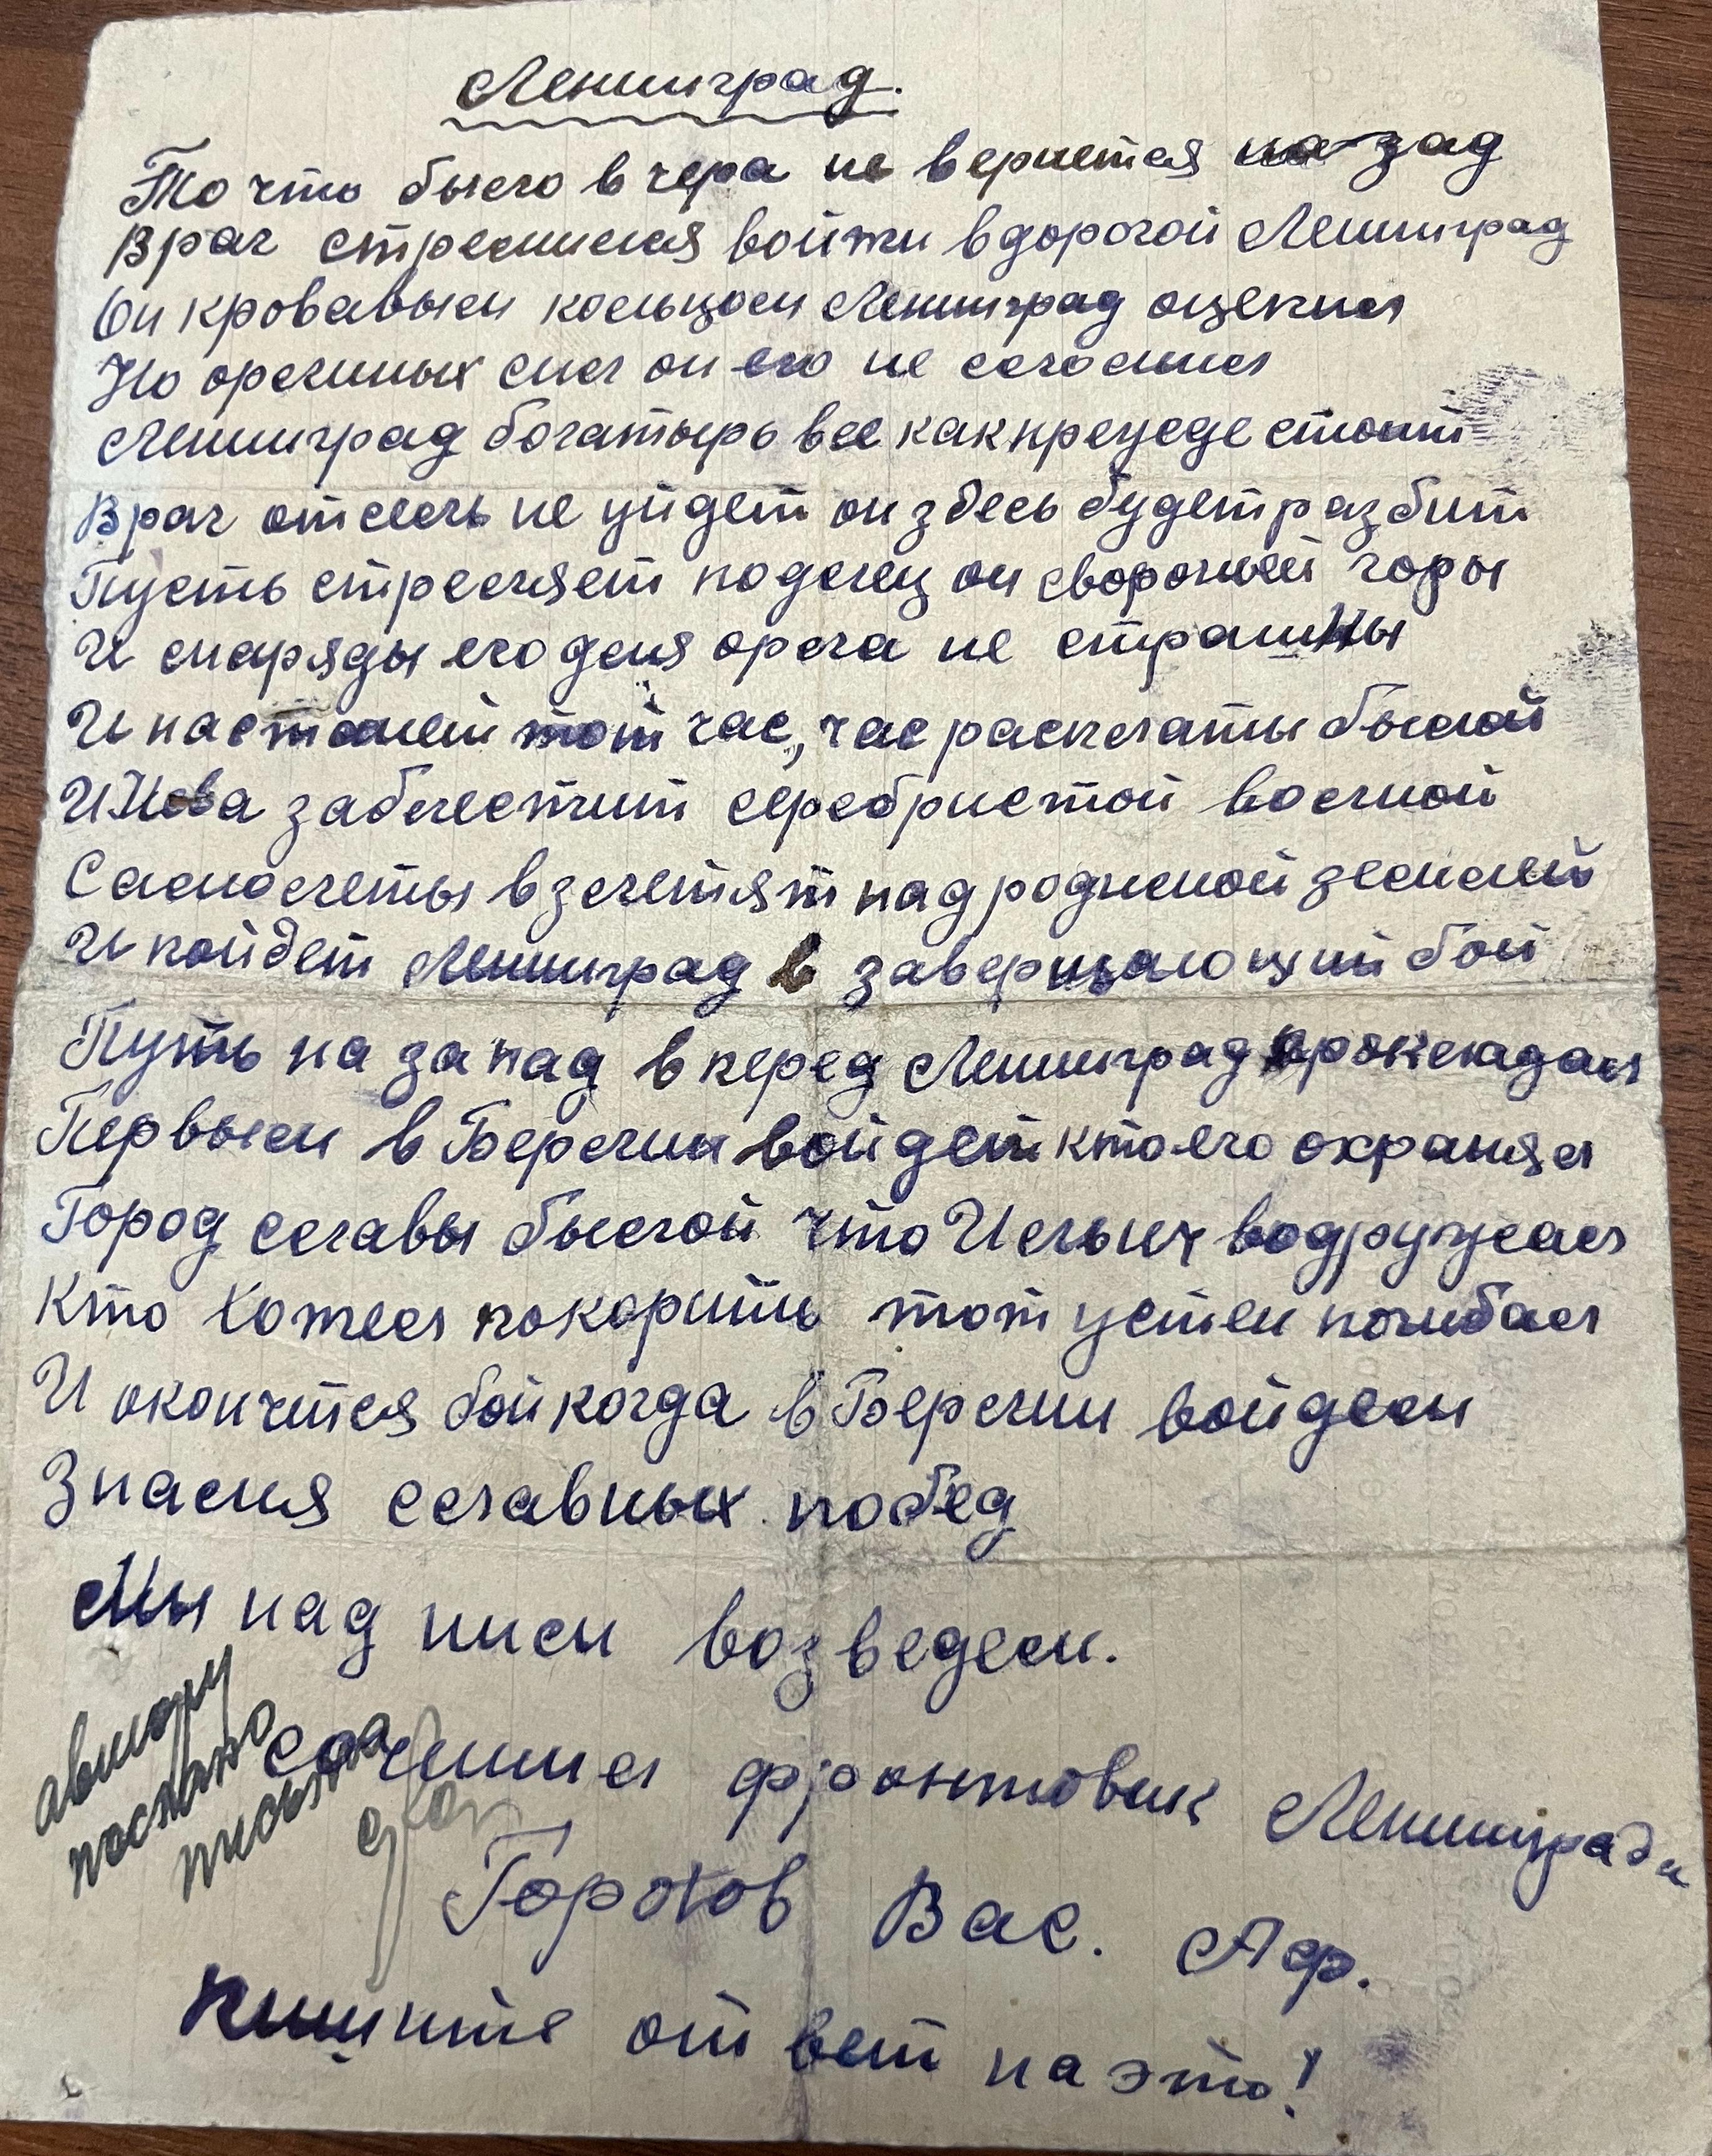 Ленинград.
То что было вчера не вернется на зад
Враг стремился войти в дорогой Ленинград
Он кровавым кольцом Ленинград оцепил
Но орлиных сил он его не сломил
Ленинград богатырь все как прежде стоит
Враг отсель не уйдет он здесь будет разбит
Пусть стреляет подлец он с вороньей горы
И снаряды его для орла не страшны
И настанет тот час, час расплаты былой
И Нева заблестит серебристой волной
Самолеты взлетят над родимой землей
И пойдет Ленинград в завершающий бой
Путь на запад вперед Ленинград прокладал
Первым в Берлин войдет кто его охранял
Город славы былой что Ильич водружал
Кто хотел покорить тот устем погибал
И окончится бой когда в Берлин войдем
Знамя славных побед
Мы над ним возведем.
сочинил фронтовик Ленинграда
Горохов Вас. Аф.
пишите ответ на это!
автору
послано
письмо